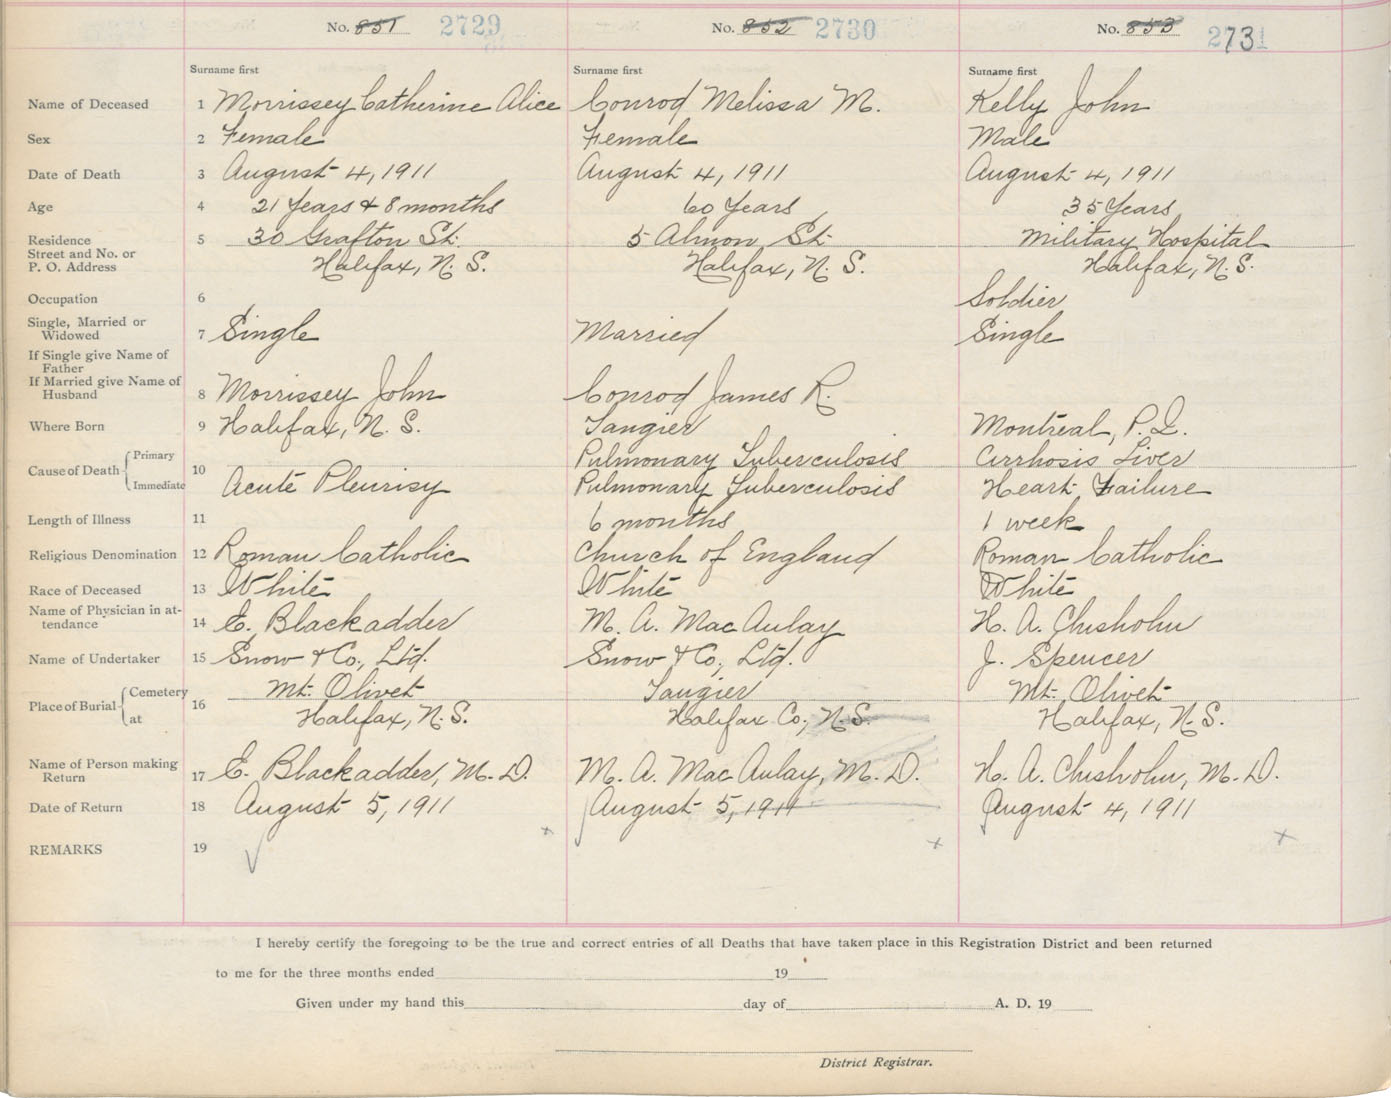 No. 851 2729 No. 852 2730 No. 853 2731
Surname first Surname first Surname first
Name of Deceased 1 Morrissey Catherine Alice Conrod Melissa M. Kelly John
Sex 2 Female Female Male
Date of Death 3 August 4, 1911 August 4, 1911 August 4, 1911
Age 4 21 Years & 8 months 60 Years 35 Years
Residence 5 30 Grafton St. 5 Almon St. Military Hospital
Street and No. or
P. O. Address Halifax, N. S. Halifax, N. S. Halifax, N. S.
Occupation 6 Soldier
Single, Married or
Widowed 7 Single Married Single
If Single give Name of
Father
If Married give Name of
Husband 8 Morrissey John Conrod James R.
Where Born 9 Halifax, N. S. Tangier Montreal, P. Q.
Primary Pulmonary Tuberculosis Cirrhosis Liver
Cause of Death 10
Immediate Acute Pleurisy Pulmonary Tuberculosis Heart Failure
Length of Illness 11 6 months 1 week
Religious Denomination 12 Roman Catholic Church of England Roman Catholic
Race of Deceased 13 White White White
Name of Physician in at-
tendance 14 E. Blackadder M. A. MacAulay H. A. Chisholm
Name of Undertaker 15 Snow & Co., Ltd. Snow & Co., Ltd. J. Spencer
Cemetery Mt. Olivet Tangier Mt. Olivet
Place of Burial 16
at Halifax, N. S. Halifax Co., N. S. Halifax, N. S.
Name of Person making
Return 17 E. Blackadder, M. D. M. A. MacAulay, M. D. H. A. Chisholm, M. D.
Date of Return 18 August 5, 1911 August 5, 1911 August 4, 1911
REMARKS 19
I hereby certify the foregoing to be the true and correct entries of all Deaths that have taken place in this Registration District and been returned
to me for the three months ended 19
Given under my hand this day of A. D. 19
District Registrar.